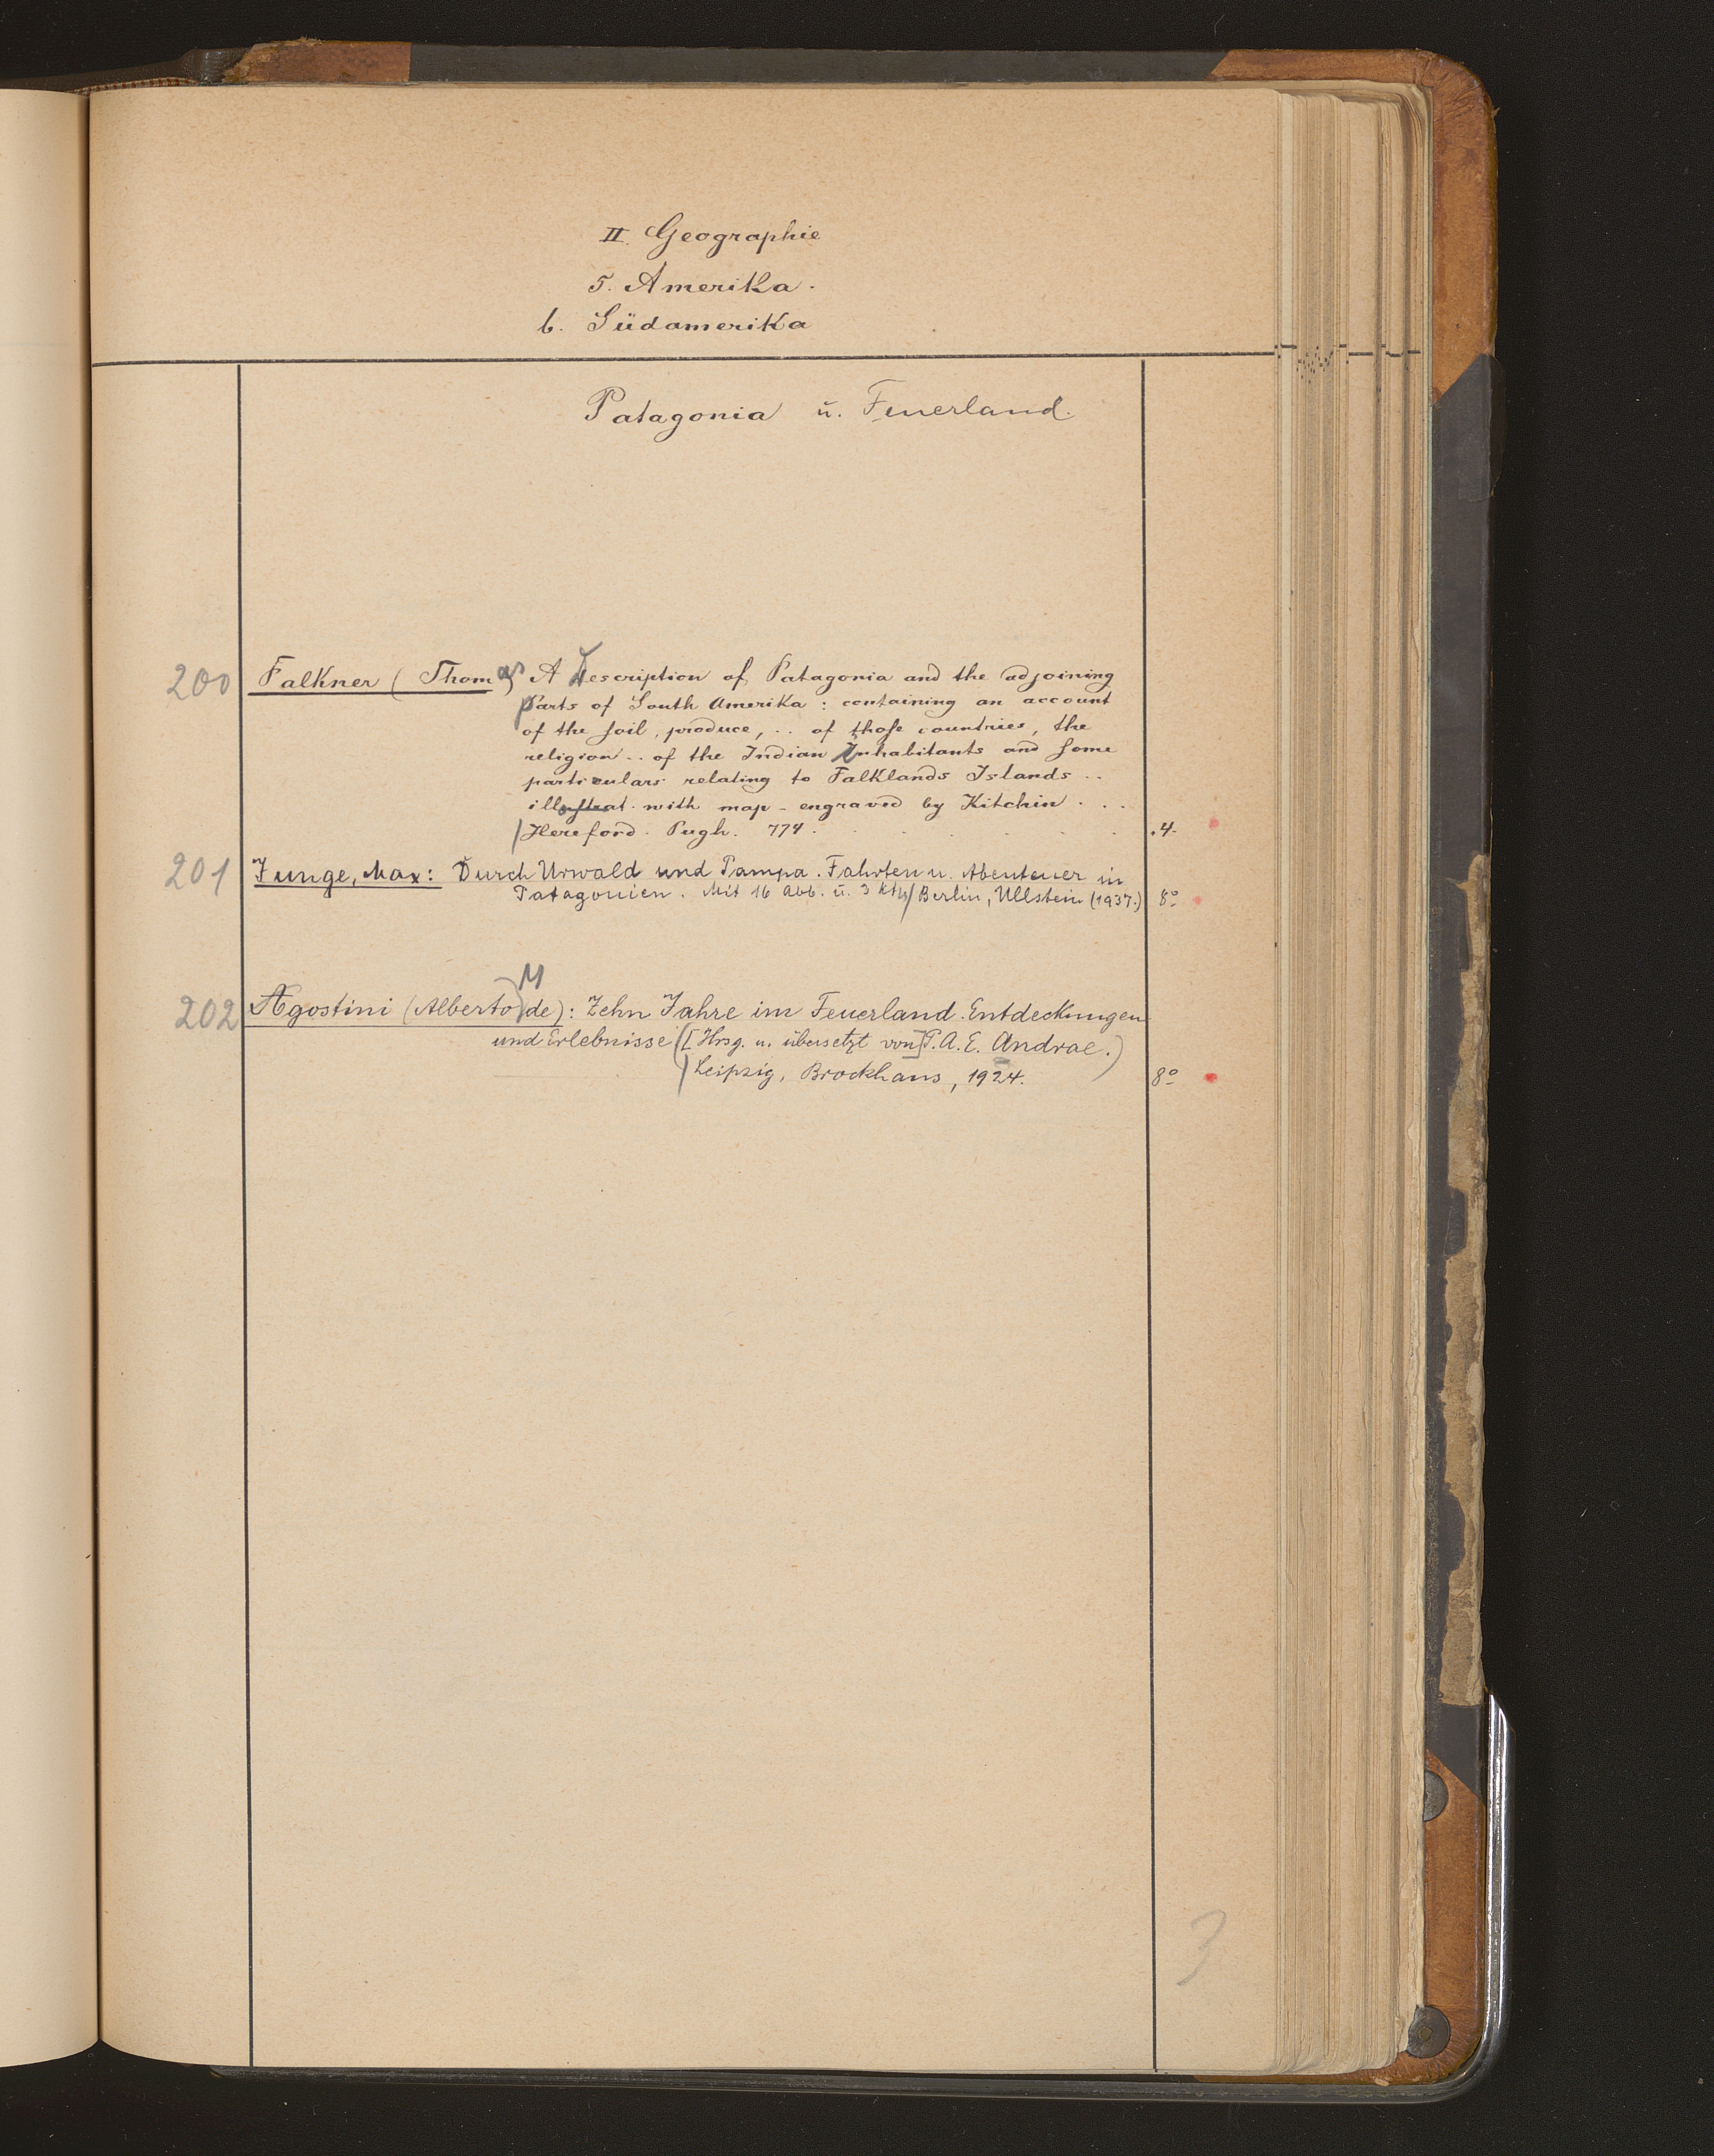 II. Geographie
5. Amerika.
b. Südamerika
Patagonia ū. Feuerland.
200 Falkner (Thomas) A Description of Patagonia and the adjoining
parts of South Amerika: containing an account
of the soil, produce, .. of those countries, the
religion .. of the Indian Inhabitants and some
particulars relating to Falklands Islands ..
illustrat. with map - engraved by Kitchin . . .
Hereford. Pugh. 774. .4.
201 Junge, Max: Durch Urwald und Pampa. Fahrten u. Abenteuer in
Patagonien. Mit 16 Abb. ū. 3 Ktn/ Berlin, Ullstein (1937.) 8°
M
202 Agostini (Alberto de): Zehn Jahre im Feuerland. Entdeckungen
und Erlebnisse ([Hrsg. u. übersetzt von] P. A. E. Andrae.)
Leipzig, Brockhaus, 1924. 8°
3